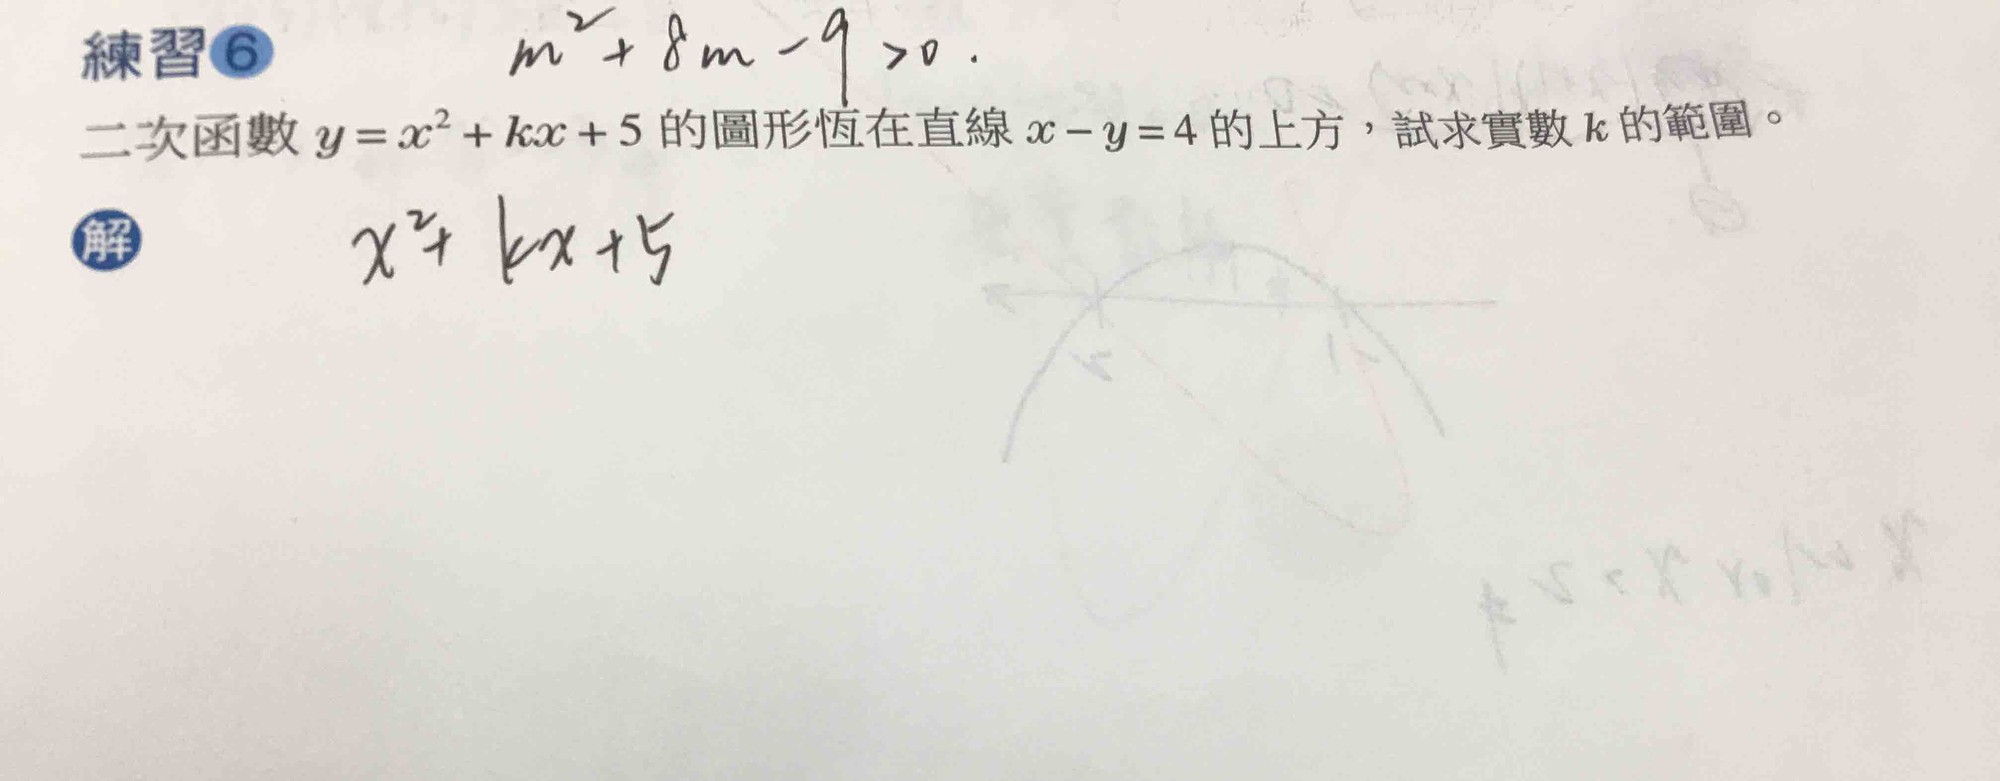 練習6
m²+8m-9>0.
二次函數 y=x²+kx+5 的圖形恆在直線 x-y=4 的上方，試求實數 k 的範圍。
解
x²+kx+5